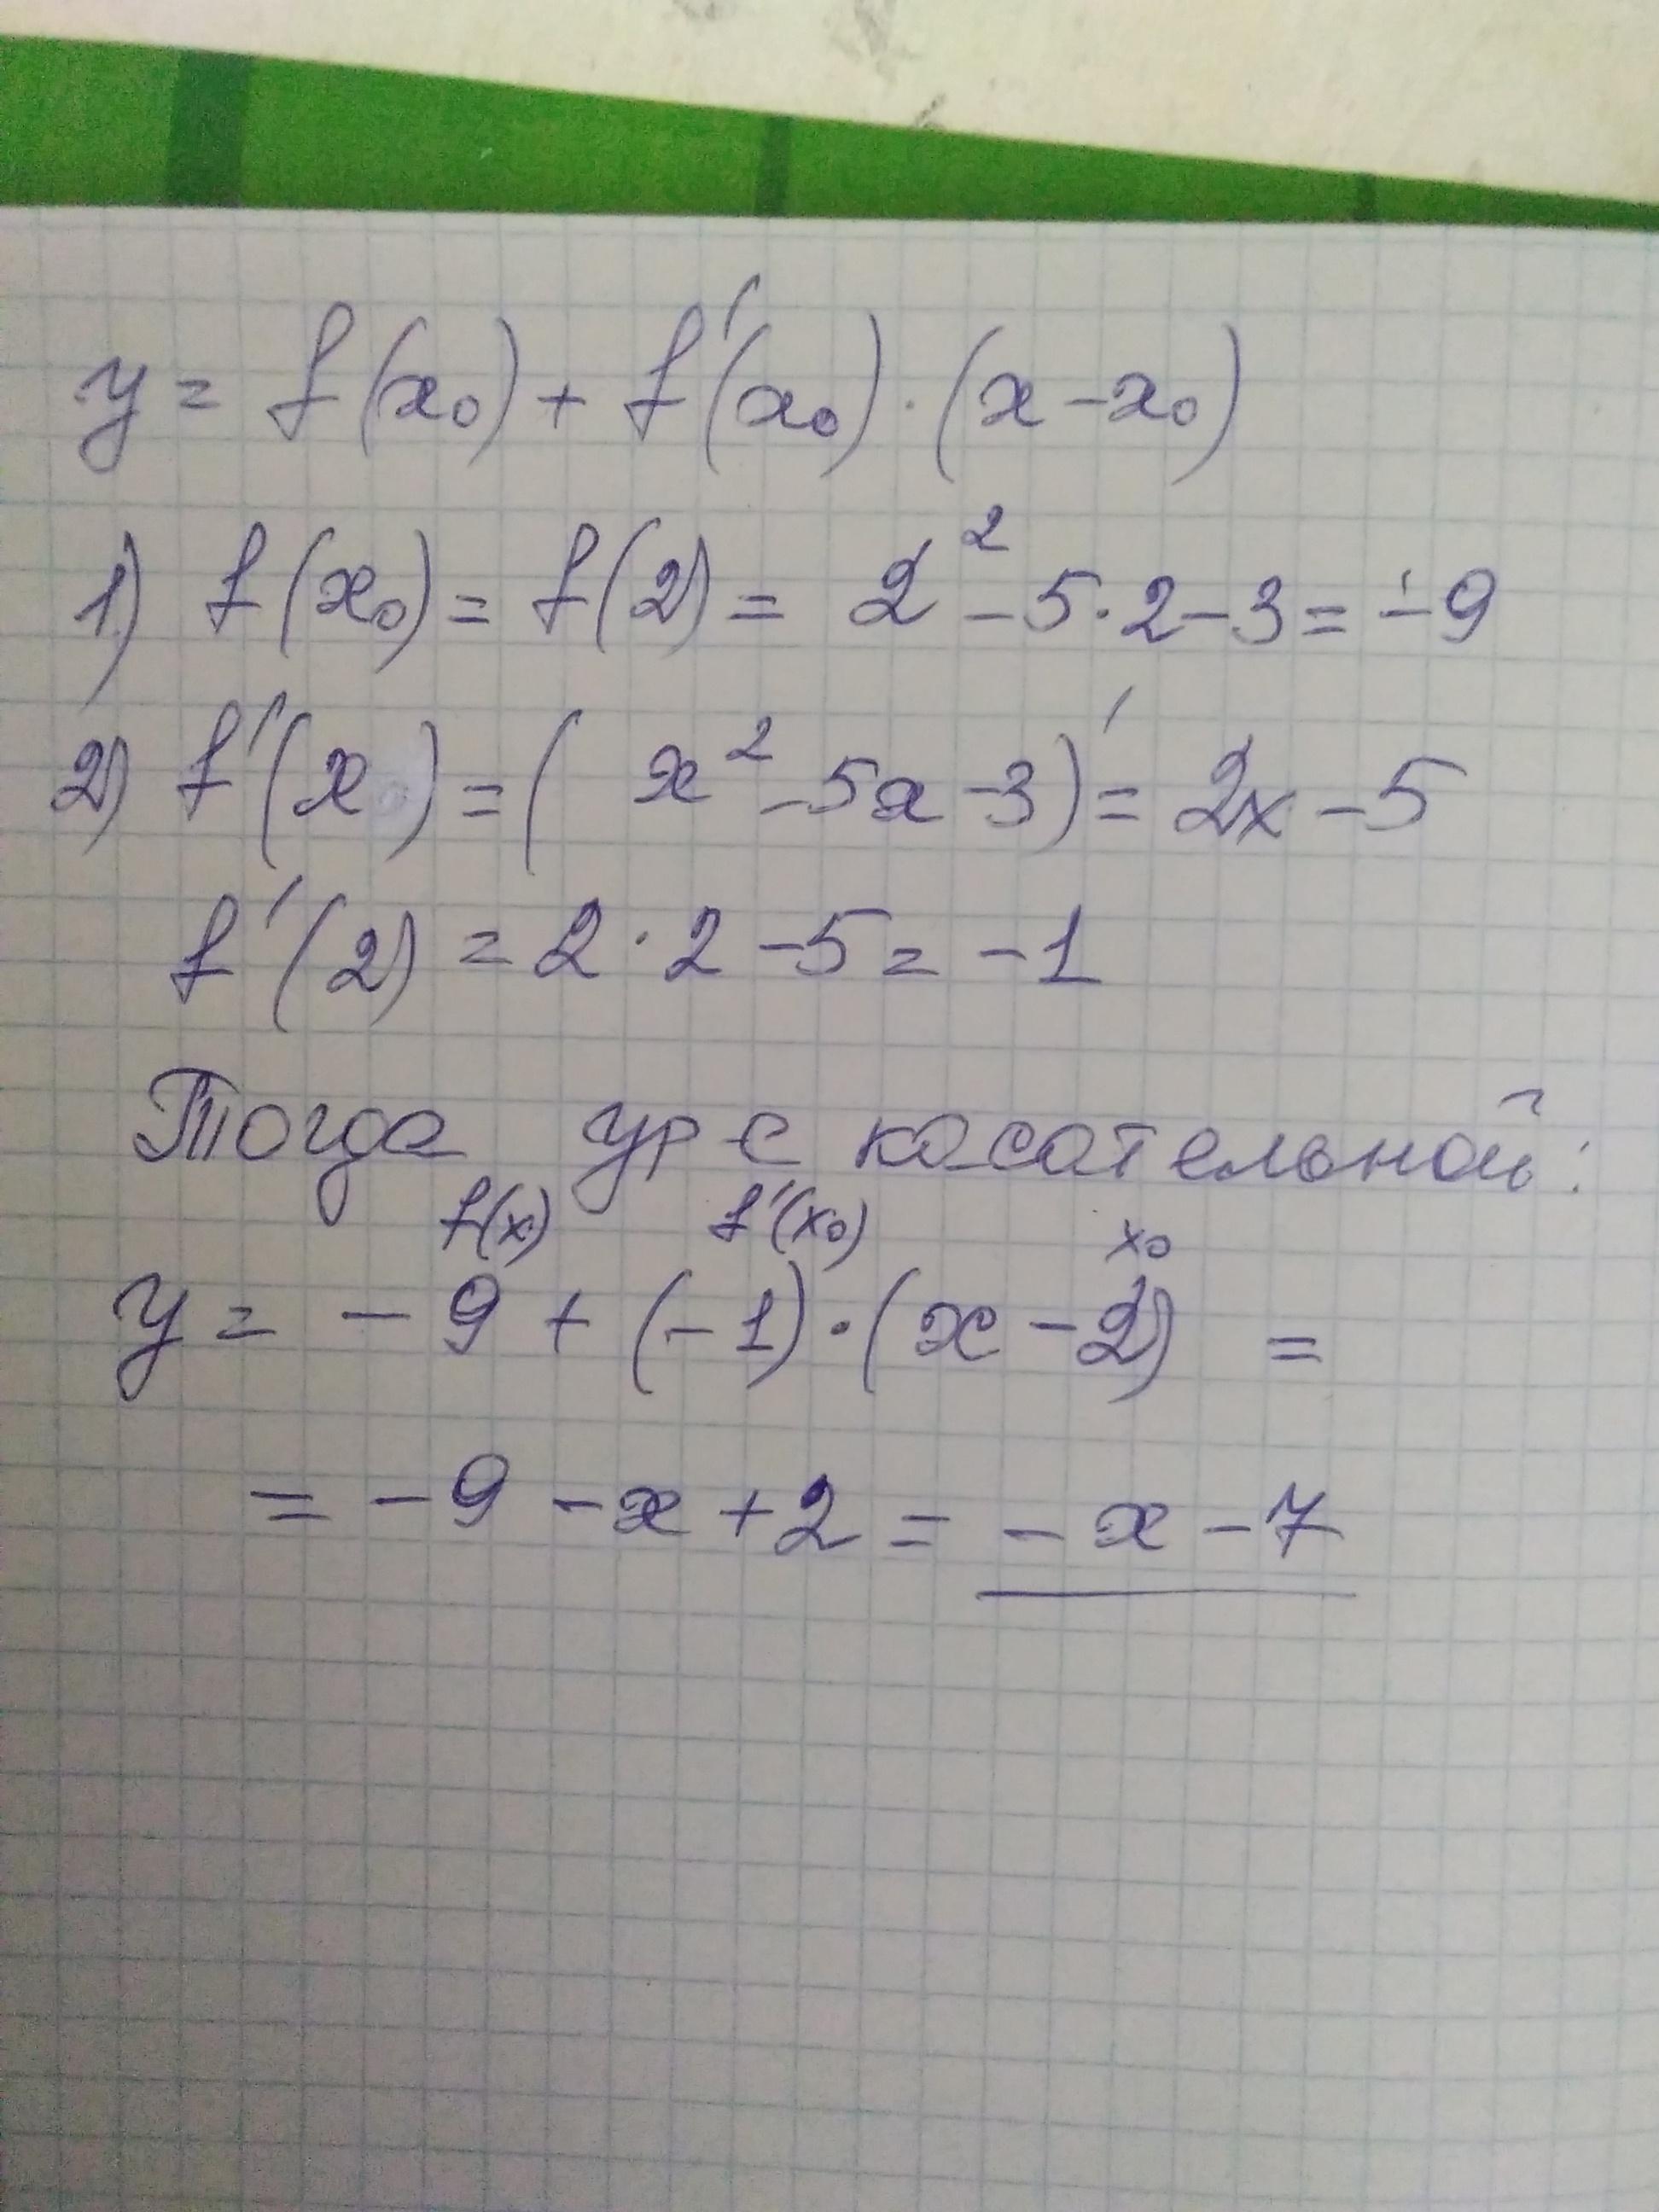 y = f(x₀) + f'(x₀) · (x - x₀)
1) f(x₀) = f(2) = 2² - 5·2 - 3 = -9
2) f'(x) = (x² - 5x - 3)' = 2x - 5
f'(2) = 2 · 2 - 5 = -1
Тогда ур-е касательной:
f(x) f'(x₀) x₀
y = - 9 + (-1) · (x - 2) =
= -9 - x + 2 = - x - 7